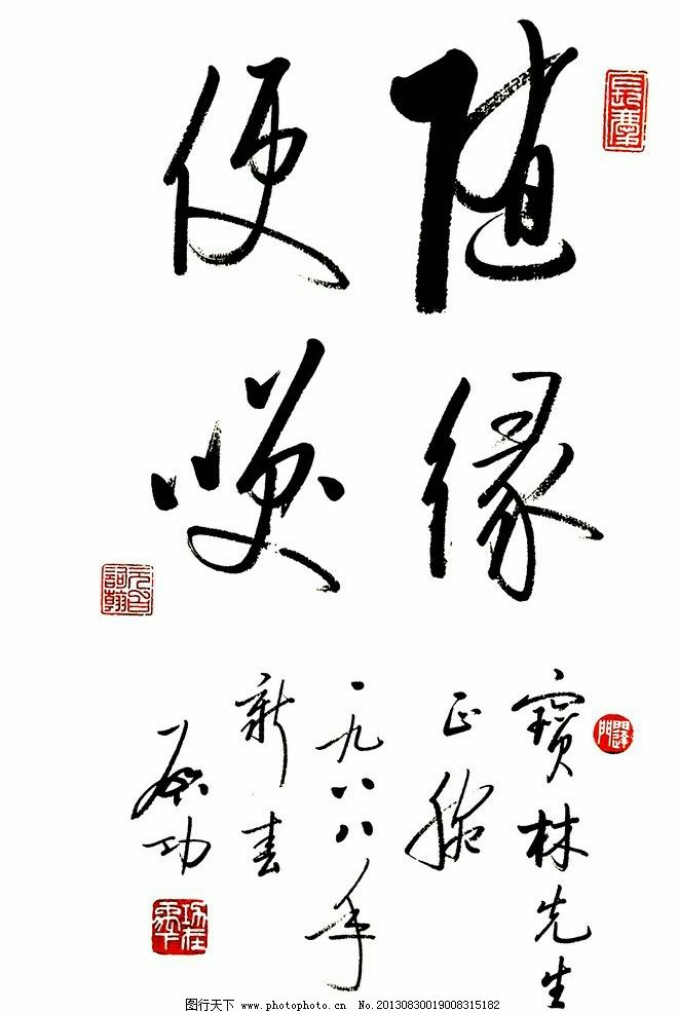 随缘
便咲
寶林先生
正腕
一九八八年
新春
启功
元白詞翰
功在禹下
图行天下 www.photophoto.cn No.20130830019008315182